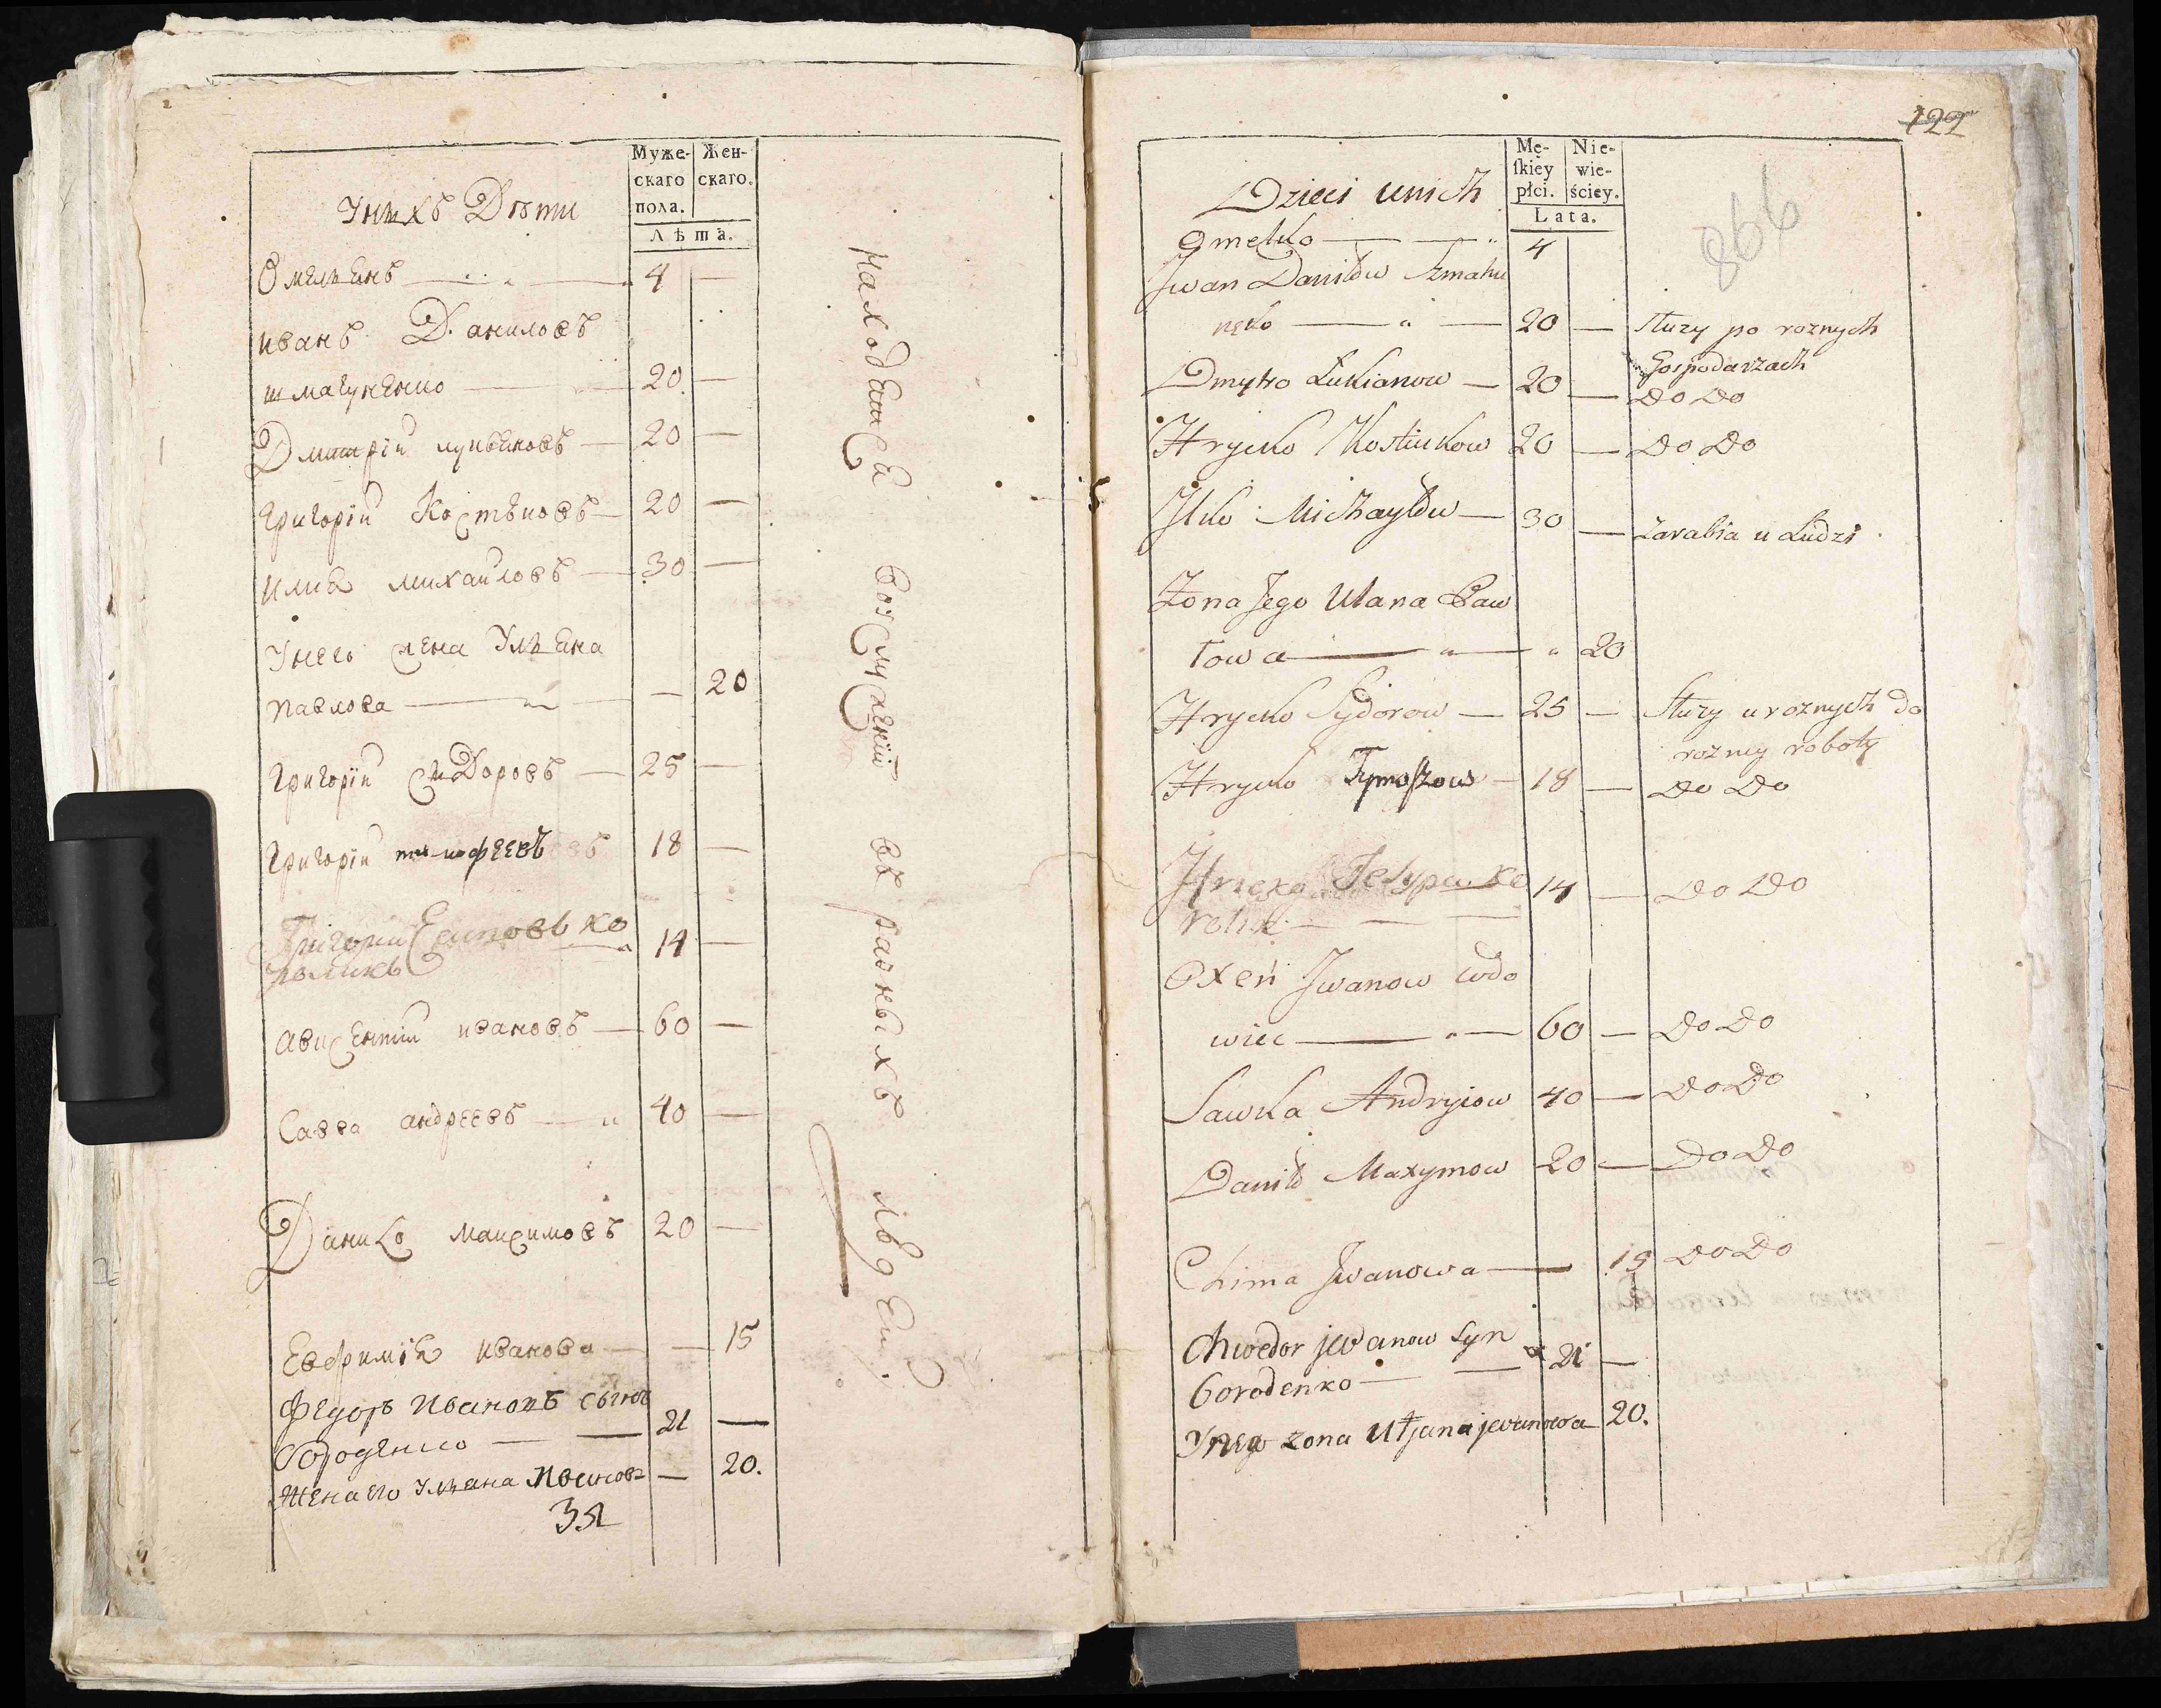 Муже-
скаго
пола.
Жен-
скаго.
Лѣта.
Унихъ Дѣти
Омельянъ 4 —
иванъ Даниловъ
шмагуненко — 20 —
Дмитрій лукьяновъ — 20 —
григорій Костюковъ — 20 —
илия михайловъ — 30 —
Унего жена Ульяна
павлова — — 20
григорій сидоровъ — 25 —
григорій тимофеевъ 18 —
Григори Есиповъ ко
роликъ 14 —
авксентій ивановъ — 60 —
Савва андреевъ — 40 —
Данило максимовъ 20 —
Евфимія иванова — — 15
Федоръ Ивановъ сынъ
бороденко — 21 —
жена его ульяна Иванова — 20.
находящися в услужении въ разныхъ людей,
122
866
Mę-
skiey
płci.
Nie-
wie-
ściey.
Lata.
Dzieci unich
Omelko — — 4
Jwan Daniłow Szmahu
nęko — — 20 — służy po roznych
Gospodarzach
Dmytro Łukianow — 20 — do do
Hrycko Kostiukow 20 — do do
Jlko Michayłow — 30 — zarabia u Ludzi
Żona Jego Ulana Paw
łowa — — 20
Hrycko Sydorow — 25 — służy u roznych do
rozney roboty
Hrycko Tymoszow — 18 — do do
rolik — — 14 — do do
Oxeń Jwanow wdo
wiec — — 60 — do do
Sawka Andryiow 40 — do do
Daniło Maxymow 20 — do do
Chima Jwanowa — 15 do do
Chwedor jwanow syn
borodenko — — 21 —
żona Uljana jwanowa 20.